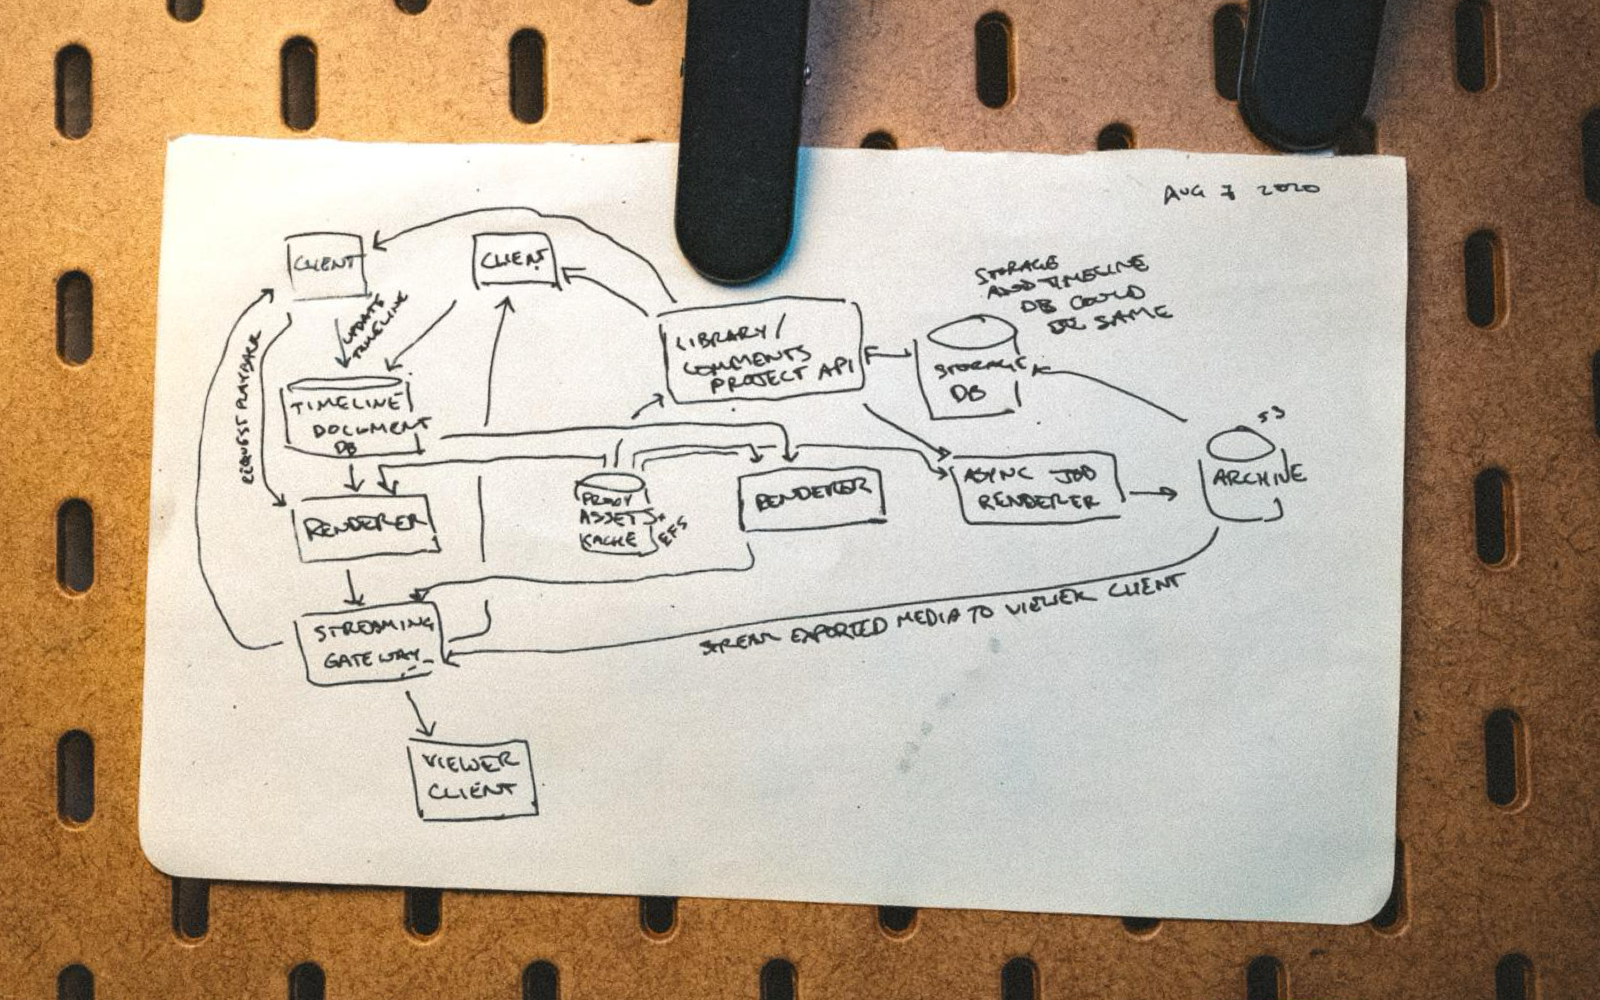 AUG 7 2020
CLIENT
CLIENT
UPDATE
TIMELINE
REQUEST PLAYBACK
LIBRARY/
COMMENTS
PROJECT API
STORAGE
AND TIMELINE
DB COULD
BE SAME
STORAGE
DB
TIMELINE
DOCUMENT
DB
S3
ARCHIVE
RENDERER
PROXY
ASSETS
KACHE
EFS
RENDERER
ASYNC JOB
RENDERER
STREAMING
GATEWAY
STREAM EXPORTED MEDIA TO VIEWER CLIENT
VIEWER
CLIENT